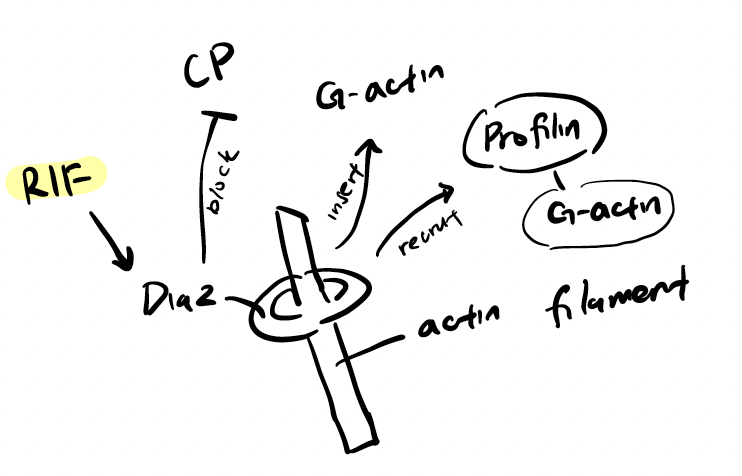 CP
G-actin
Profilin
G-actin
RIF
block
insert
recruit
Dia2
actin filament